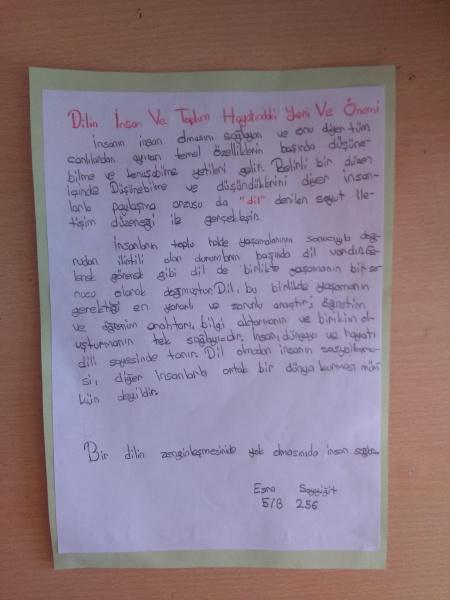 Dilin İnsan Ve Toplum Hayatındaki Yeri Ve Önemi
İnsanın insan olmasını sağlayan ve onu diğer tüm
canlılardan ayıran temel özelliklerin başında düşüne-
bilme ve konuşabilme yetileri gelir. Belirli bir düzen
içinde Düşünebilme ve düşündüklerini diğer insan-
larla paylaşma arzusu da "dil" denilen soyut ile-
tişim düzeneği ile gerçekleşir.
İnsanların toplu halde yaşamalarının sonucuyla doğ-
rudan ilintili olan durumların başında dil
görenek gibi dil de birlikte yaşamanın bir so-
nucu olarak doğmuştur. Dil, bu birlikte yaşamanın
gerektiği en yararlı ve zorunlu araçtır; öğretim
ve öğrenim anahtarı, bilgi aktarmanın ve birikim ol-
uşturmanın tek sağlayıcıdır. İnsan, dünyayı ve hayatı
dili sayesinde tanır. Dil olmadan insanın sosyalleşme-
si, diğer insanlarla ortak bir dünya kurması müm-
kün değildir.
Bir dilin zenginleşmesinide yok olmasınıda insan sağlar.
Esra Saygiğit
5/B 256